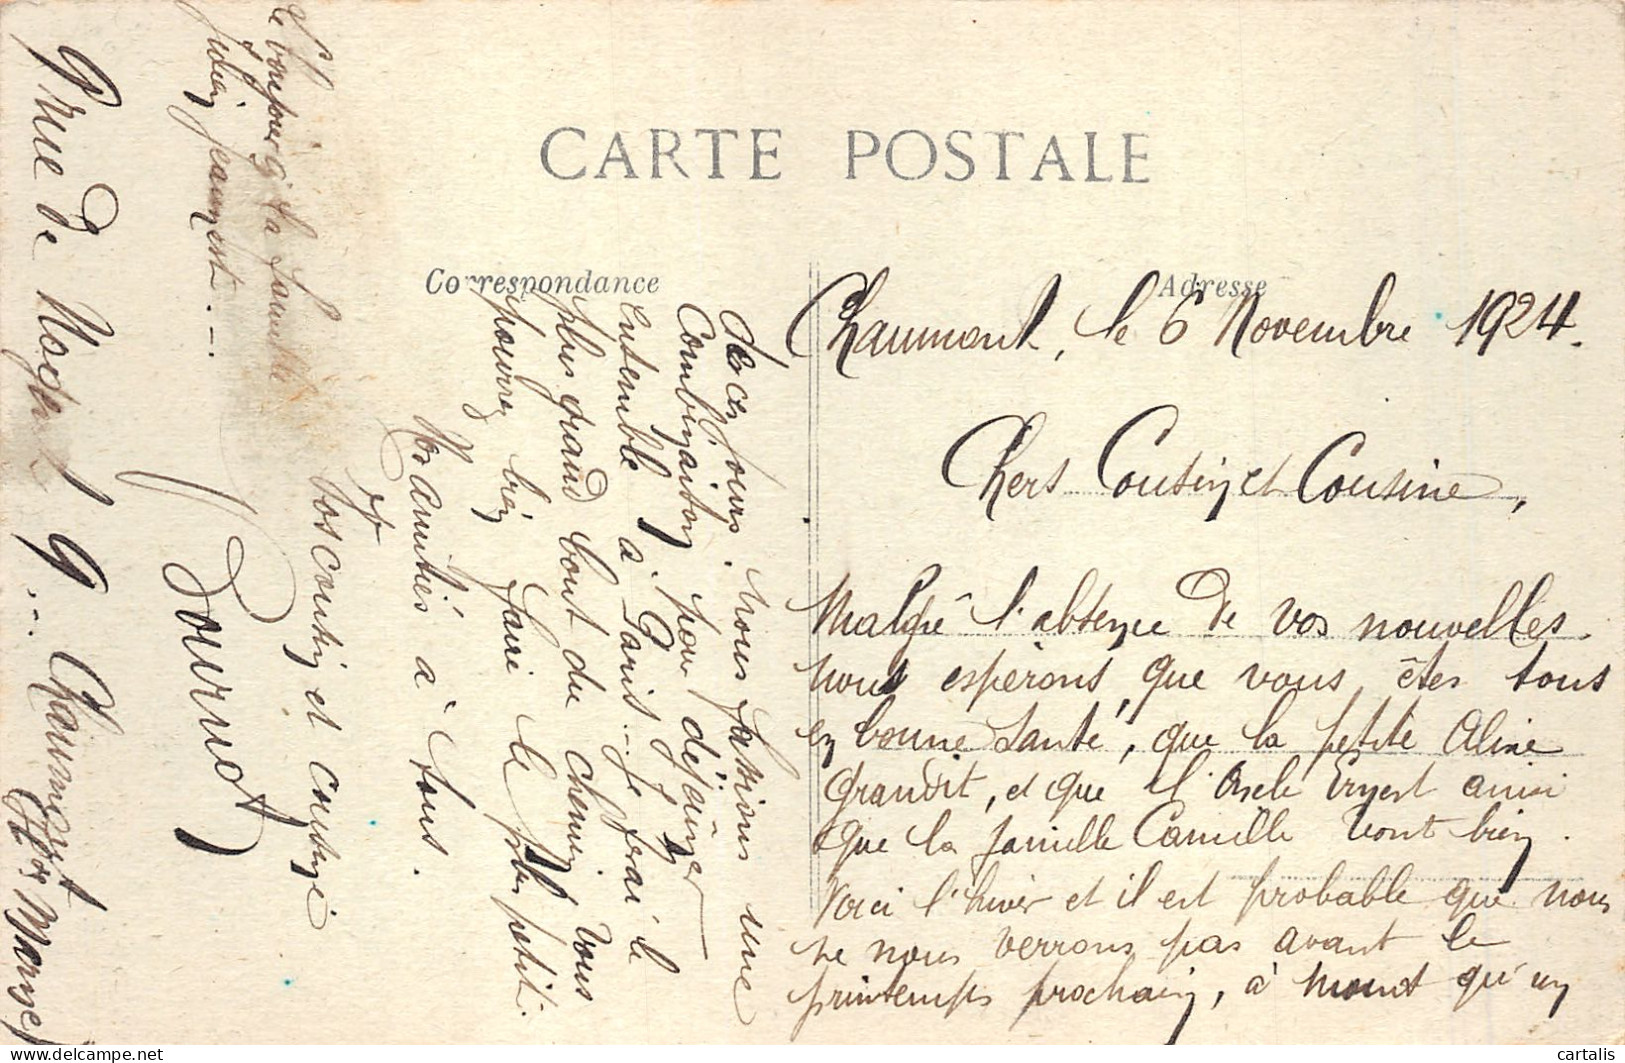 CARTE POSTALE
Correspondance
Adresse
Chaumont, le 6 Novembre 1924.
Chers Cousin et Cousine,
Malgré l'absence de vos nouvelles
nous espérons, que vous êtes tous
en bonne santé, que la petite Aline
grandit, et que l'Oncle Ernest ainsi
que la famille Camille vont bien.
Voici l'hiver et il est probable que nous
ne nous verrons pas avant le
printemps prochain, à moins qu'un
de ces jours, nous fassions une
Combinaison pour déjeuner
ensemble à Paris... Je ferai le
plus grand bout du chemin, vous
pourrez bien faire le plus petit.
Nos amitiés à tous.
Vos cousin et cousine
Bournot
9 rue de
9... Chaumont
Hte Marne
le bonjour à la famille
Jeannest...
cartalis
delcampe.net